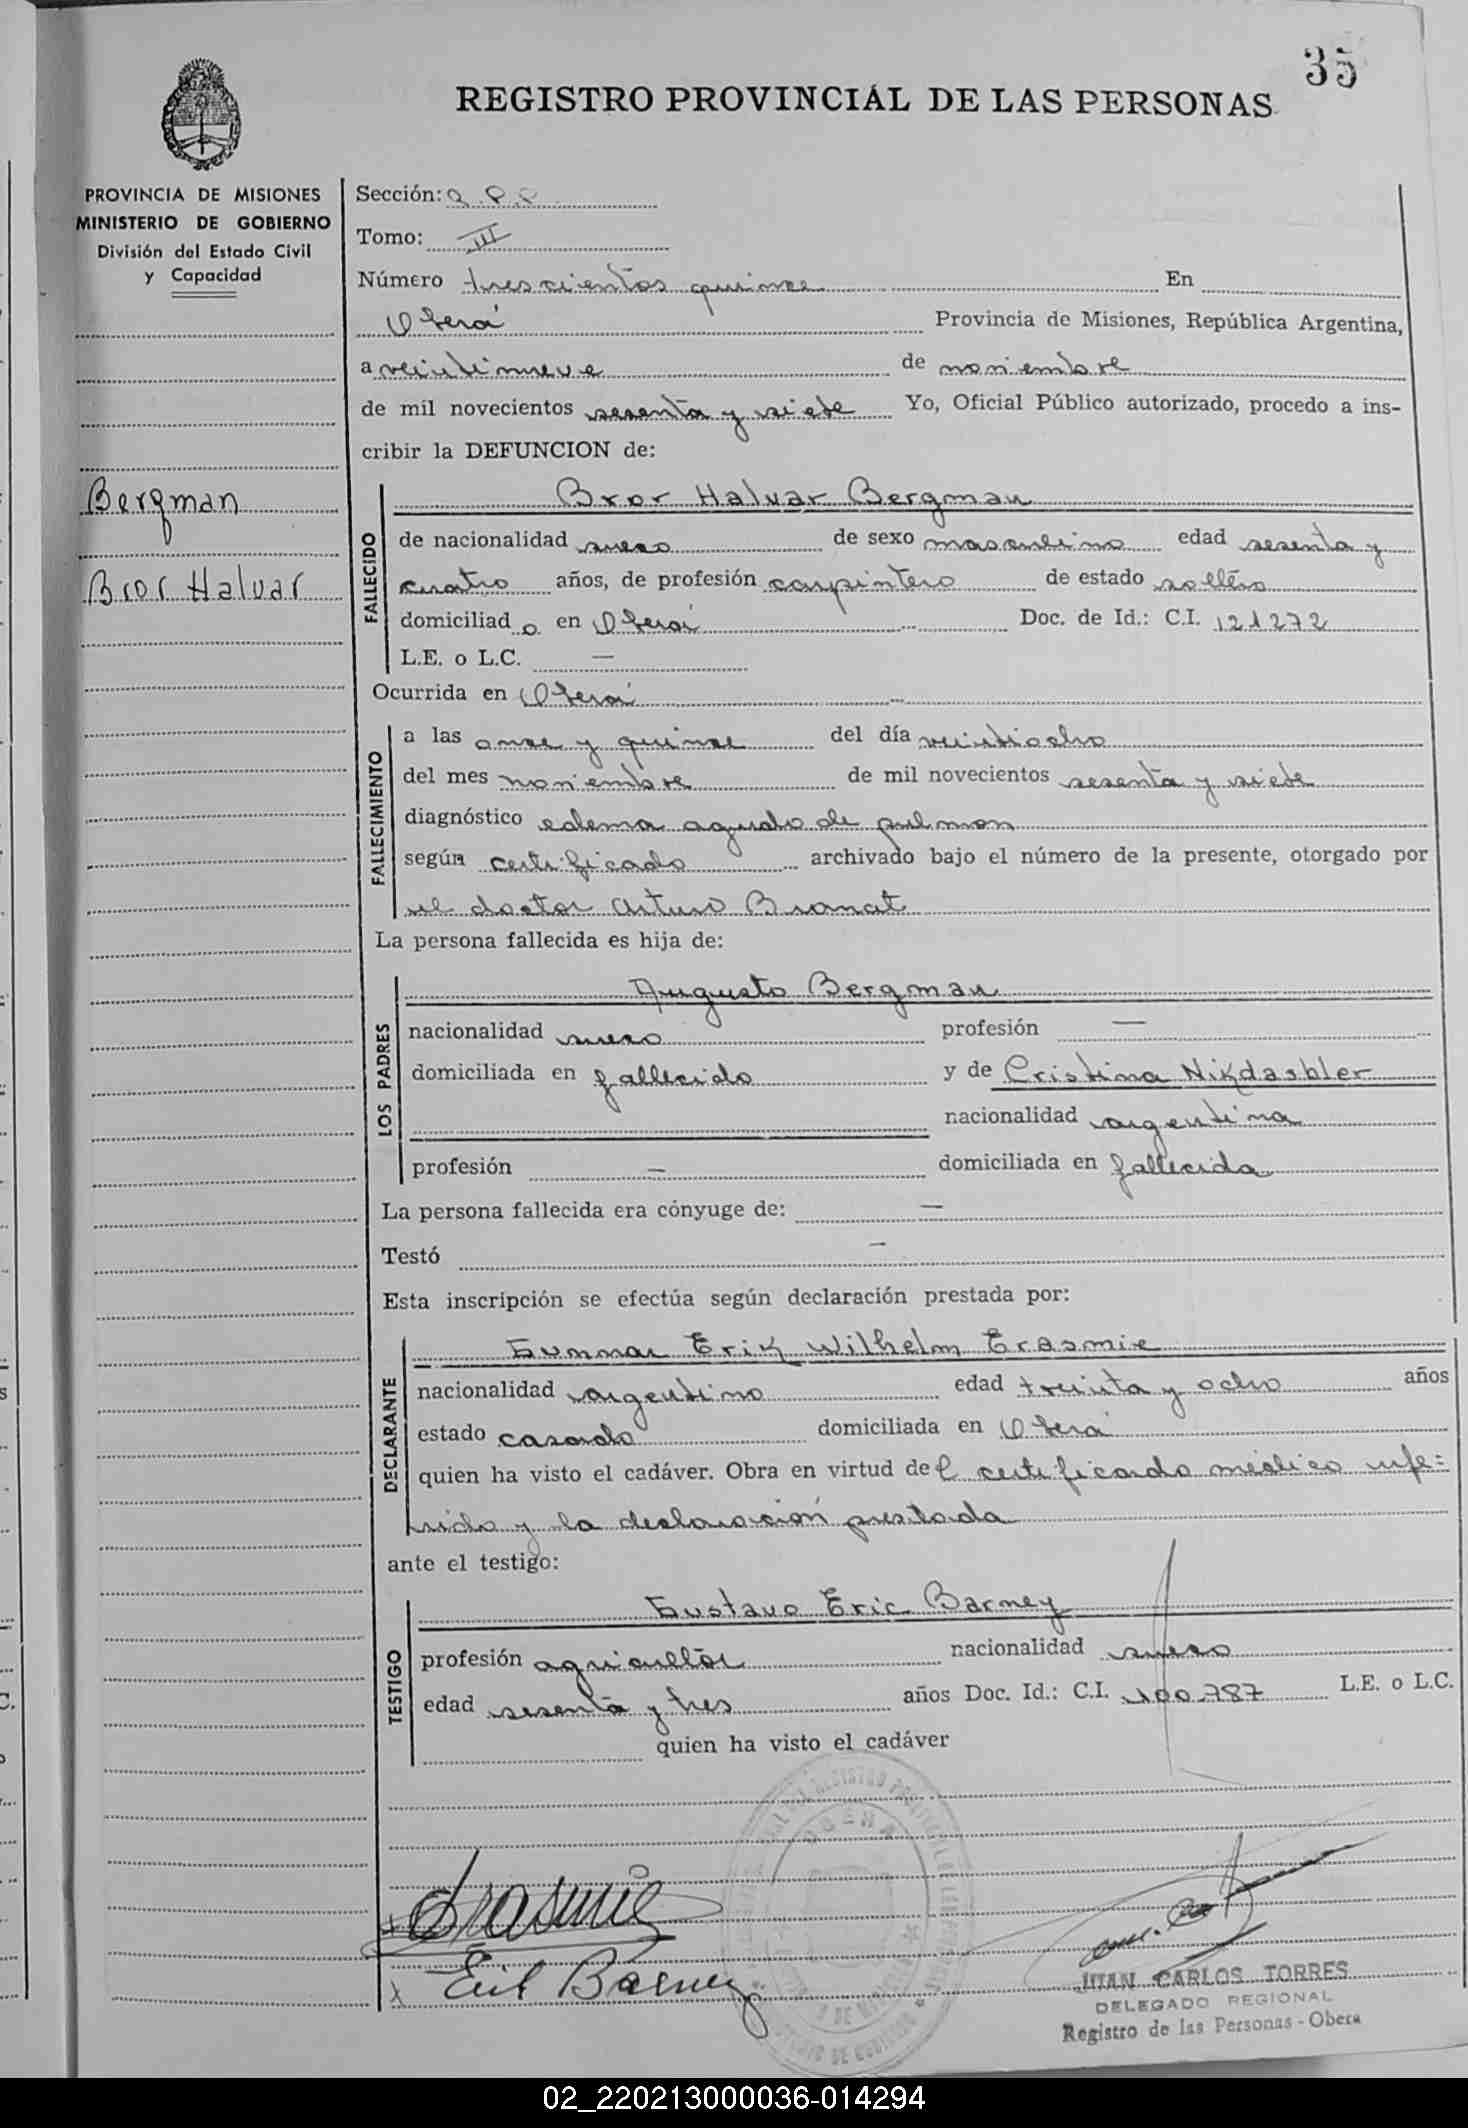 35
REGISTRO PROVINCIAL DE LAS PERSONAS
PROVINCIA DE MISIONES
MINISTERIO DE GOBIERNO
División del Estado Civil
y Capacidad
Sección:
Tomo: III
Número trescientos quince En
Oberá Provincia de Misiones, República Argentina,
a veintinueve de noviembre
de mil novecientos sesenta y siete Yo, Oficial Público autorizado, procedo a ins-
cribir la DEFUNCION de:
Bergman
Bror Halvar
FALLECIDO
Bror Halvar Bergman
de nacionalidad sueco de sexo masculino edad sesenta y
cuatro años, de profesión carpintero de estado soltero
domiciliad o en Oberá Doc. de Id.: C.I. 121272
L.E. o L.C. —
Ocurrida en Oberá
FALLECIMIENTO
a las once y quince del día veintiocho
del mes noviembre de mil novecientos sesenta y siete
diagnóstico edema agudo de pulmon
según certificado archivado bajo el número de la presente, otorgado por
el doctor Arturo
La persona fallecida es hija de:
LOS PADRES
Augusto Bergman
nacionalidad sueco profesión —
domiciliada en fallecido y de Cristina Nikdasbler
nacionalidad argentina
profesión — domiciliada en fallecida
La persona fallecida era cónyuge de: —
Testó —
Esta inscripción se efectúa según declaración prestada por:
DECLARANTE
Gunnar Erik Wilhelm Erasmie
nacionalidad argentino edad treinta y ocho años
estado casado domiciliada en Oberá
quien ha visto el cadáver. Obra en virtud del certificado médico refe=
rido y la declaración prestada
ante el testigo:
TESTIGO
Gustavo Eric Barney
profesión agricultor nacionalidad sueco
edad sesenta y tres años Doc. Id.: C.I. 100.787 L.E. o L.C.
quien ha visto el cadáver
Erasmie
x Erik Barney
JUAN CARLOS TORRES
DELEGADO REGIONAL
Registro de las Personas - Obera
02_220213000036-014294